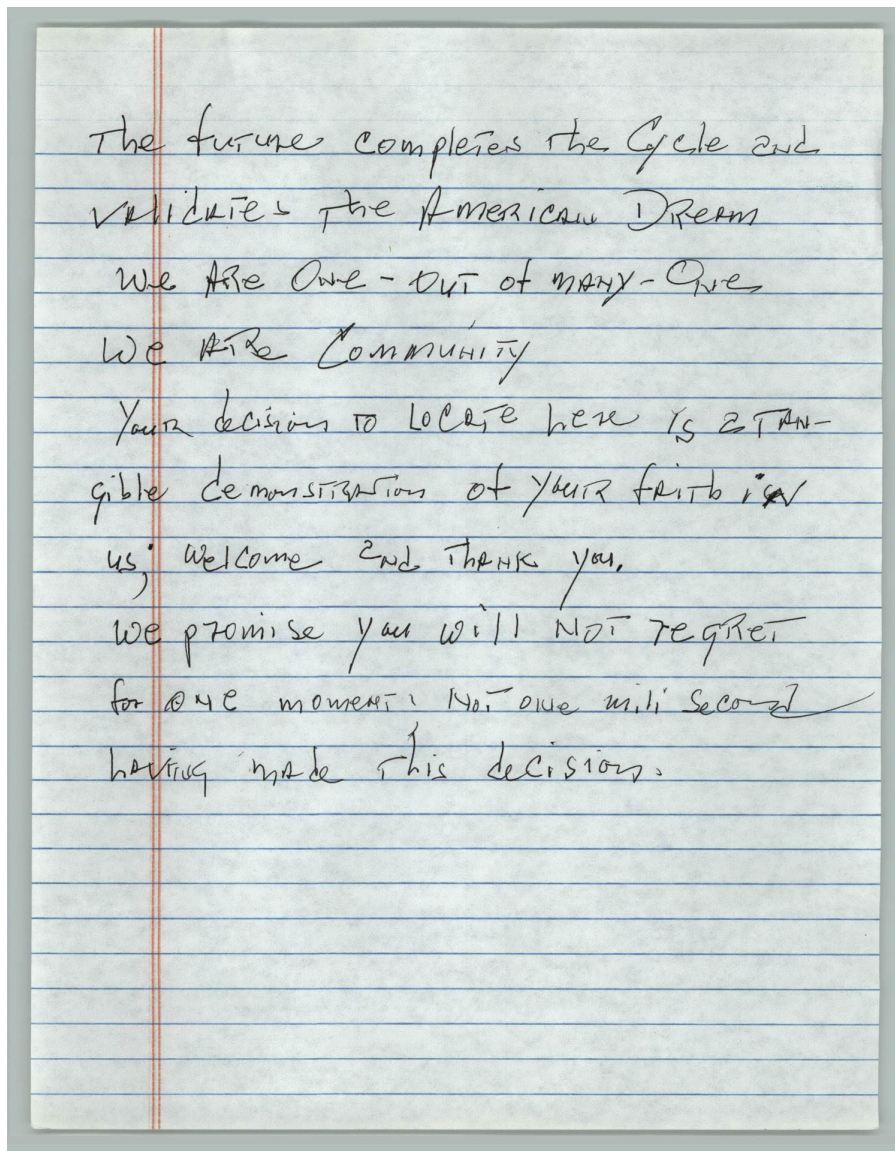 The future completes the Cycle and
validates the American Dream
We Are One - out of many - One
We Are Community
Your decision to Locate here is a tan-
gible demonstration of your faith in
us; Welcome and Thank you.
We promise you will Not regret
for one moment; Not one mili Second
having made this decision.